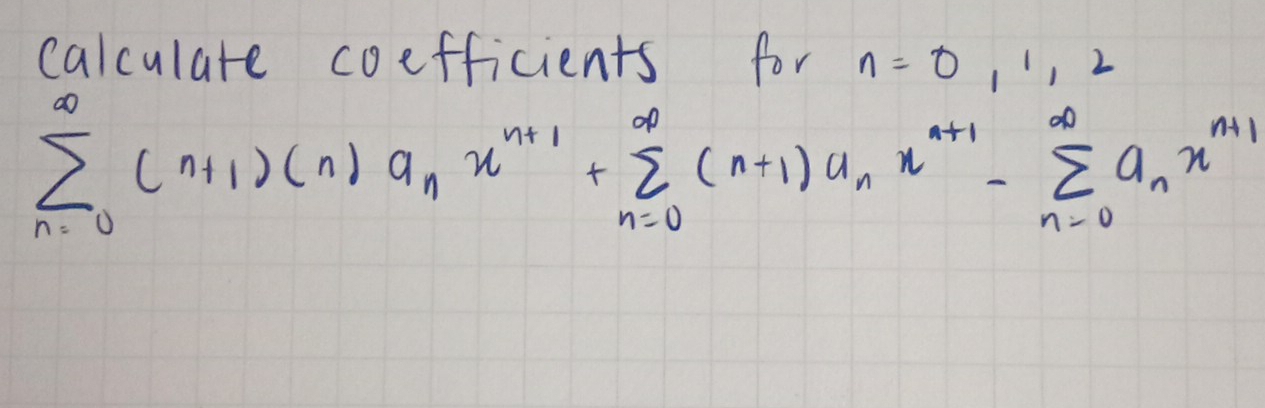 Calculate coefficients for n = 0, 1, 2
∞ ∑ n=0 (n+1)(n) aₙ xⁿ⁺¹ + ∞ ∑ n=0 (n+1) aₙ xⁿ⁺¹ - ∞ ∑ n=0 aₙ xⁿ⁺¹